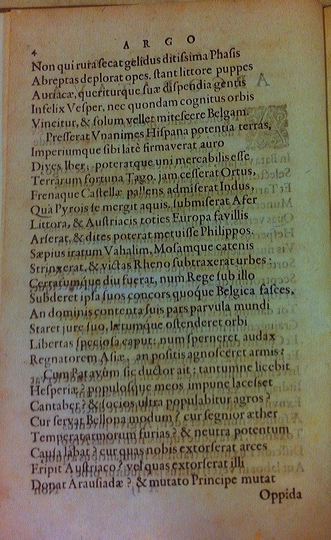 4
ARGO
Non qui rura secat gelidus ditissima Phasis
Abreptas deplorat opes. stant littore puppes
Austriacæ, queriturque suæ dispendia gentis
Infelix Vesper, nec quondam cognitus orbis
Vincitur, & solum vellet mitescere Belgam.
Presserat Vnanimes Hispana potentia terras,
Imperiumque sibi latè firmaverat auro
Dives Iber; poteratque uni mercabilis esse,
Terrarum fortuna Tago. jam cesserat Ortus,
Frenaque Castellæ pallens admiserat Indus,
Quà Pyrois se mergit aquis, submiserat Afer
Littora, & Austriacis toties Europa favillis
Arserat, & dites poterat metuisse Philippos.
Sæpius iratum Vahalim, Mosamque catenis
Strinxerat, & victas Rheno subtraxerat urbes:
Certarumque diu fuerat, num Rege sub illo
Subderet ipsa suos concors quoque Belgica fasces.
An dominis contenta suis pars parvula mundi
Staret jure suo, lætumque ostenderet orbi
Libertas speciosa caput: num sperneret audax
Regnatorem Asiæ, an positis agnosceret armis?
Cum Patavum sic ductor ait: tantumne licebit
Hesperiæ? populosque meos impune lacesset
Cantaber? & socios ultra populabitur agros?
Cur servat Bellona modum? cur segnior æther
Temperat armorum furias? & neutra potentum
Causa labat? cur quas nobis extorserat arces
Eripit Austriaco? vel quas extorserat illi
Donat Arausiadæ? & mutato Principe mutat
Oppida